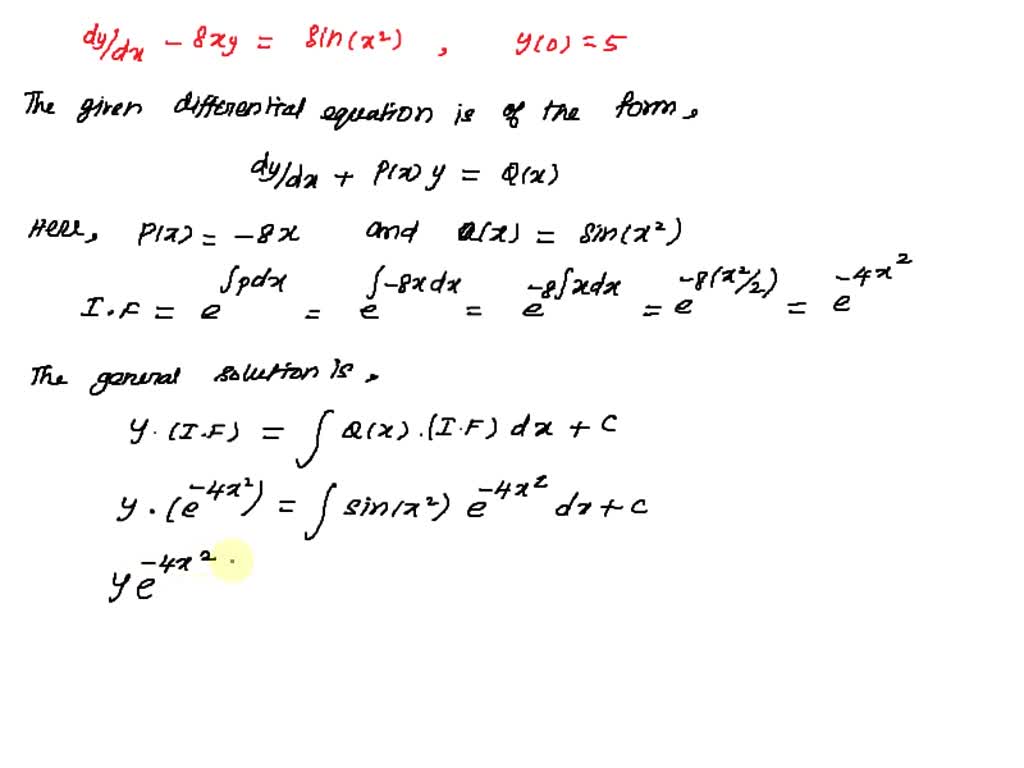 dy/dx - 8xy = sin(x²) , y(0) = 5
The given differential equation is of the form,
dy/dx + P(x) y = Q(x)
Here, P(x) = -8x and Q(x) = sin(x²)
I.F = e^∫pdx = e^∫-8xdx = e^-8∫xdx = e^-8(x²/2) = e^-4x²
The general solution is,
y · (I.F) = ∫ Q(x) . (I.F) dx + C
y · (e^-4x²) = ∫ sin(x²) e^-4x² dx + C
y e^-4x²